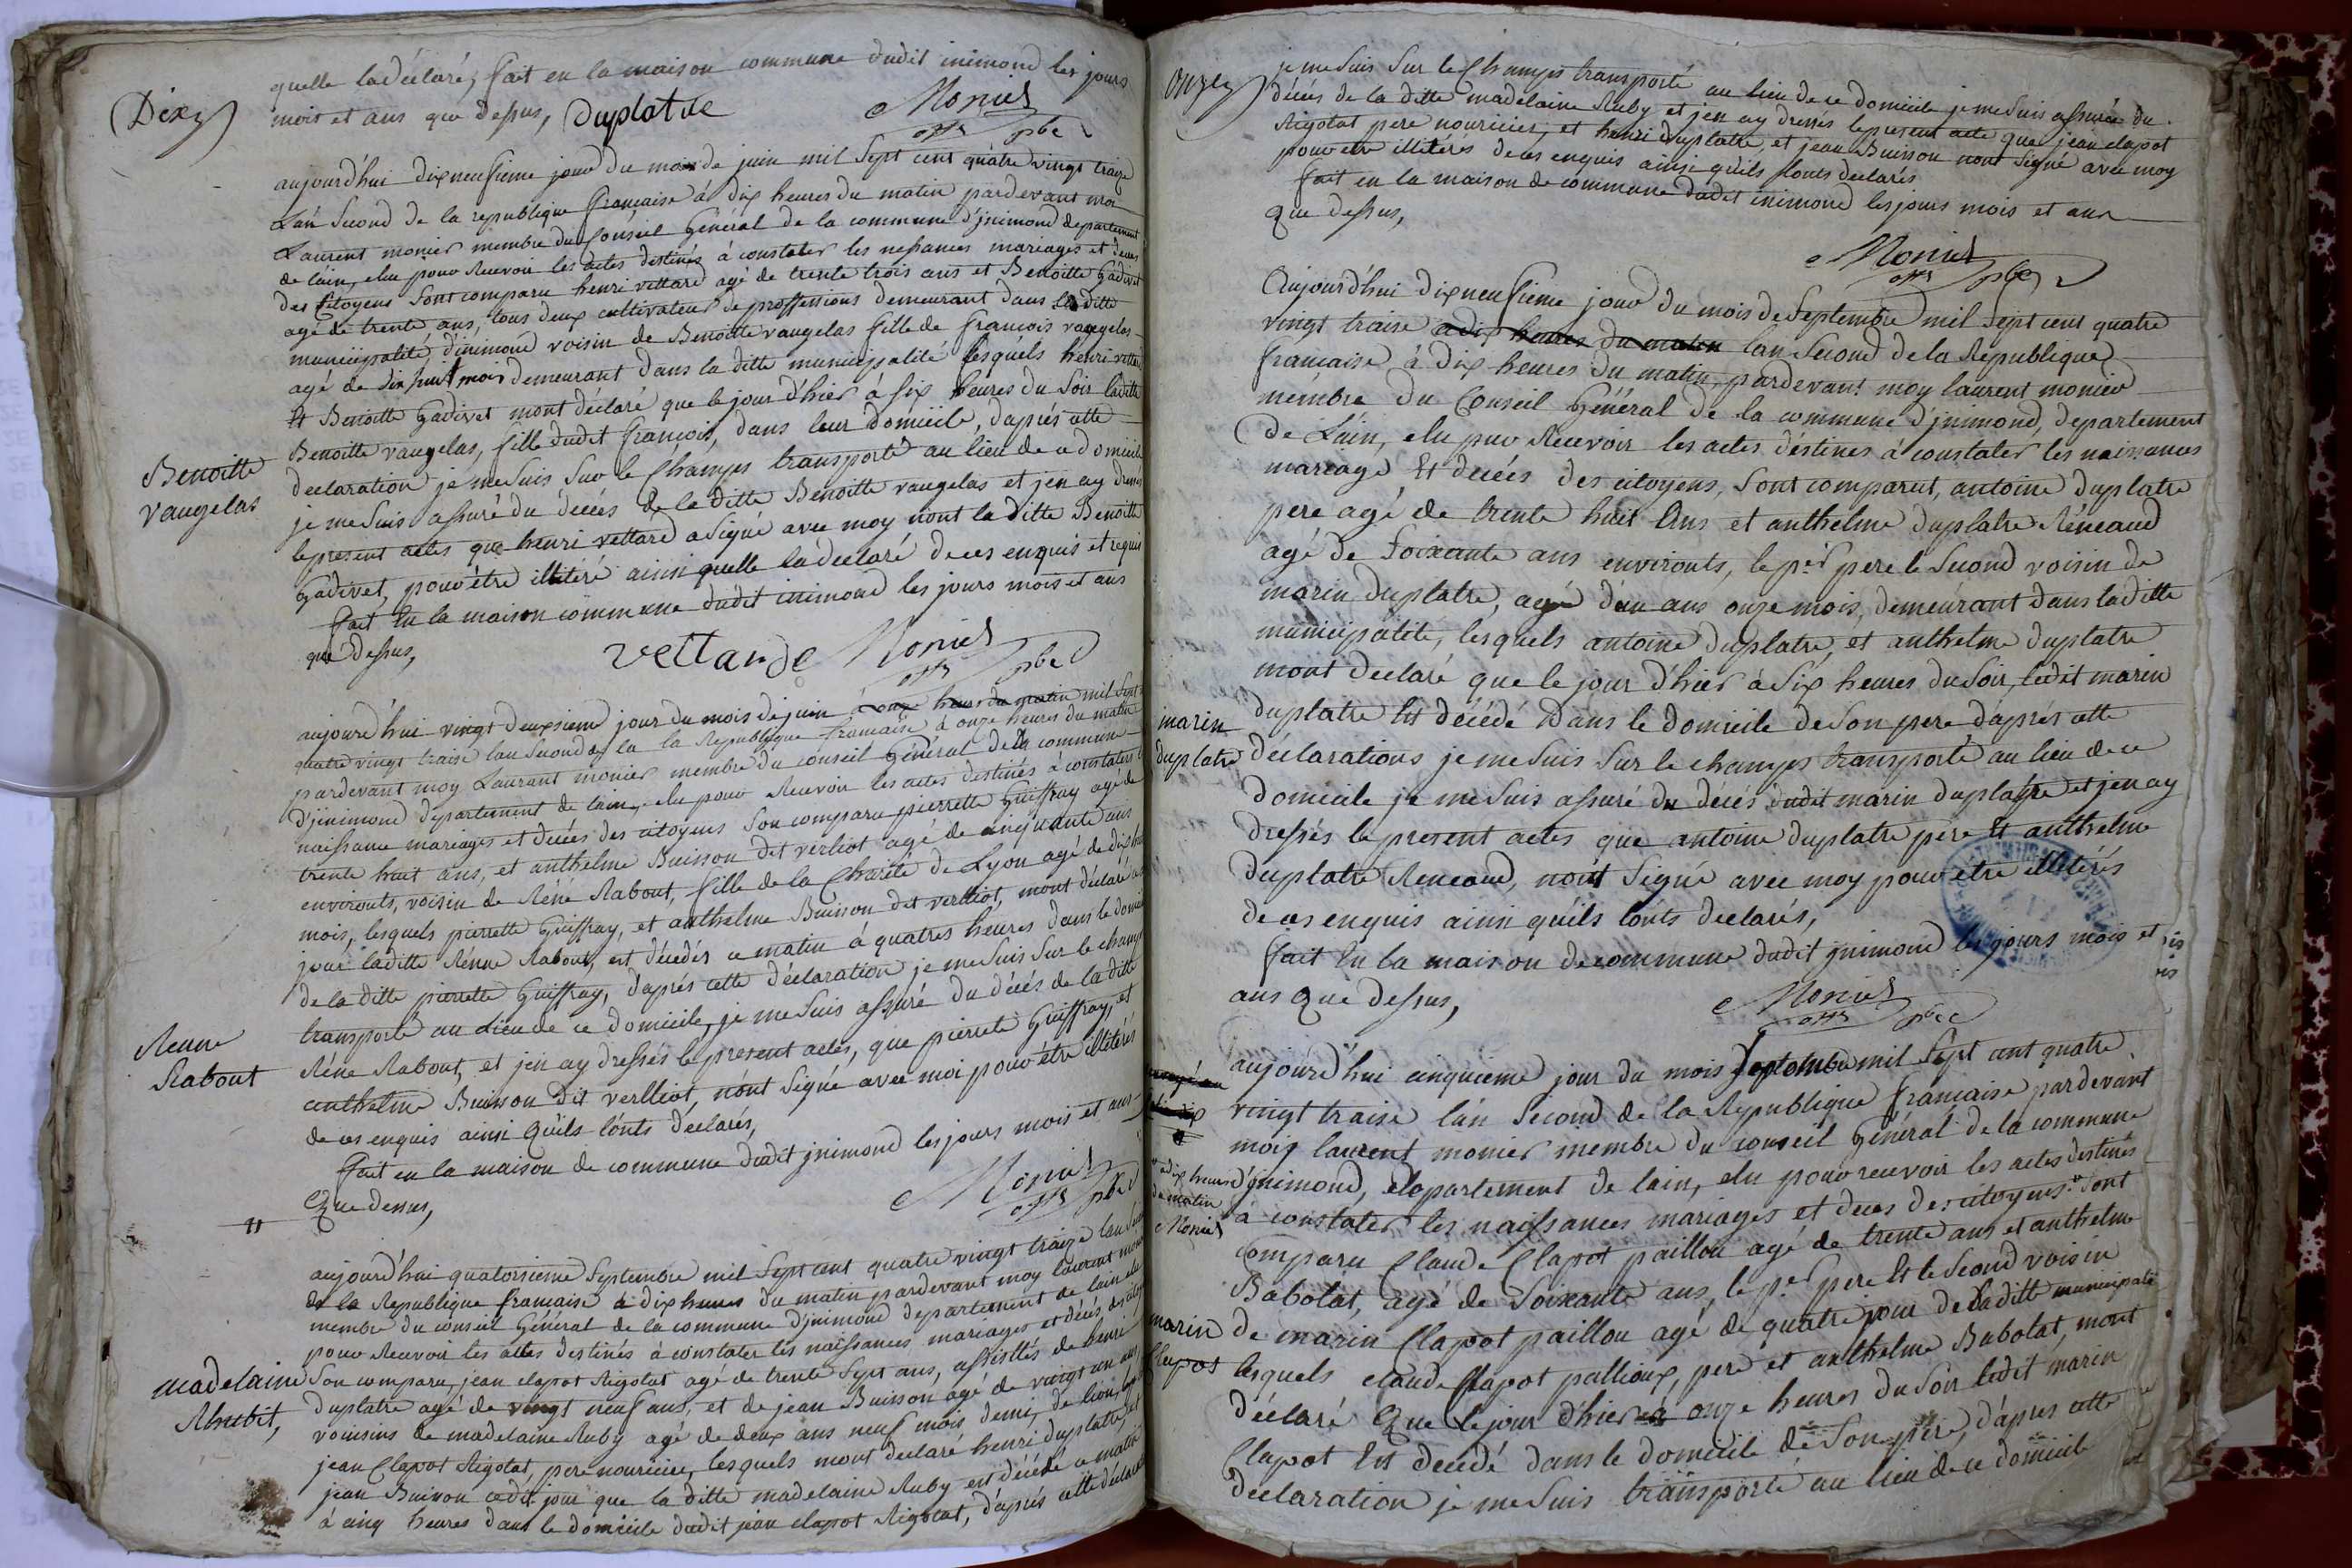 Dix
quelle la déclaré, fait en la maison commune dudit inimond les jours
mois et ans que dessus, Duplatre Monier
offr pbc
aujourd'hui dixneufieme jour du mois de juin mil sept cent quatre vingt traize
L'an second de la republique francaise à dix heures du matin pardevant moi
Laurent monier membre du Conseil Général de la commune d'jnimond departement
de lain, elu pour Recevoir les actes destinés à constater les nessances mariages et deces
des Citoyens sont comparu henri vettard agé de trente trois ans et Benoitte Gadivet
agé de trente ans, tous deux cultivateur de proffessions demeurant dans la ditte
municipalité, d'inimond voisin de Benoitte vaugelas fille de francois vaugelas
agé de dix huit mois demeurant dans la ditte municipalité lesquels henri vettard
Et Benoitte Gadivet mont déclaré que le jour d'hier à six heures du soir laditte
Benoitte vaugelas, fille dudit francois, dans leur domicile, daprés cette
Benoitte
vaugelas
declaration je me suis sur le champs transporté au lieu de ce domicile
je me suis assuré du décés de la ditte Benoitte vaugelas et jen ay dressé
le present actes que henri vettard a signé avec moy nont la ditte Benoitte
Gadivet, pour être illiteré ainsi quelle la declaré de ces enquis et requis
fait En la maison commune dudit inimond les jours mois et ans
que dessus, vettarde Monier
offr pbc
aujourd'hui vingt deuxsieme jour du mois de juin à onze heur du matin mil sept
quatre vingt traise lan second de la la Republique francaise à onze heures du matin
pardevant moy Laurant monier membre du conseil Général de la commune
d'jinimond departement de lain, elu pour Recevoir les actes destinés à constater
naissance mariages et decés des citoyens son comparu pierrette Guiffray agé de
trente huit ans, et anthelme Buisson dit verliot agé de cinquante ans
environts, voisin de Réné Rabout, fille de la Charité de Lyon agé de dix
mois, lesquels pierrette Guiffray, et anthelme Buisson dit verlliot, mont déclaré
jour laditte Rénne Rabout, est décédés ce matin à quatres heures dans le domicile
de la ditte pierrette Guiffray, daprés cette déclaration je me suis sur le champs
transporté au Lieu de ce domicile, je me suis assuré du décés de la ditte
Renne
Rabout
Réne Rabout, et jen ay dressés le present actes, que pierrete Guiffray, et
anthelme Buisson dit verlliot, nont signée avec moi pour être illiterés
de ces enquis ainsi quils lonts declarés,
fait en la maison de commune dudit jnimond les jours mois et ans
Que dessus, Monier
offr pbc
aujourd'hui quatorsieme Septembre mil sept cent quatre vingt traize lan second
de la Republique francaise à dix heures du matin pardevant moy laurent monier
membre du conseil Général de la commune d'jnimond departement de lain elu
pour Recevoir les actes destinés à constater les naissances mariages et décés des citoyens
madelaine
Rhubit,
Son comparu, jean clapot Rigotat agé de trente Sept ans, assisttés de henri
Duplatre agé de vingt neuf ans, et de jean Buisson agé de vaingt un ans
voinsins de madelaine Ruby agé de deux ans neuf mois demi, de lion,
jean Clapot Rigotat, pere nouricier, lesquels mont declaré henri duplatre, et
jean Buisson cedit jour que la ditte madelaine Ruby est décédé ce matin
à cinq heures dans le domicile dudit jean clapot Rigotat, d'aprés cette déclaration
Onze
je me suis sur le Champs transporté au lieu de ce domicile je me suis assurée du
décés de la ditte madelaine Ruby et jen ay dressés le present acte que jean clapot
Rigotat pere nouricier, et henri duplatre, et jean Buisson nont signé avec moy
pour etre illiterés de ces enquis ainsi quils lonts declarés
fait en la maison de commune dudit inimond les jours mois et ans
que dessus,
Monier
offr pbc
Aujourd'hui dixneufieme jour du mois de Septembre mil Sept cent quatre
vingt traise a dix heures du matin lan Second de la Republique
francaise à dix heures du matin, pardevant moy laurent monier
membre du Conseil Général de la commune d'jnimond, departement
De Lain, elu pour Recevoir les actes destines à constater les naissances
mareage Et decées des citoyens, sont comparut, antoine duplatre
pere agé de trente huit Ans et anthelme duplatre Réneaud
agé de soixante ans environts, le per pere le second voisin de
marin duplatre, agé d'un ans onze mois, demeurant dans laditte
municipalité, lesquels antoine duplatre, et anthelme duplatre
mont declaré que le jour d'hier à six heures du soir, ledit marin
marin
duplatre
duplatre Est décédé dans le domicile de son pere d'aprés cette
déclarations je me suis sur le champs transporté au lieu de ce
domicile je me suis assuré du décés dudit marin duplatre et jen ay
dressés le present actes que antoine duplatre père Et anthelme
Duplatre Reneaud, nont signé avec moy pour être illiterés
de ces enquis ainsi quils lonts declarés,
fait En la maison de commune dudit jnimond les jours mois et
ans Que dessus,
Monier
offr pbc
aujourd'hui cinquieme jour du mois Septembre mil sept cent quatre
vingt traise l'an Second de la Republique francaise pardevant
moi laurent monier membre du conseil Général de la commune
a dix heures
du matin
Monier
d'jnimond, departement de lain, elu pour recevoir les actes destinés
à constater les naissances mariages et deces des citoyens sont
Comparu Claude Clapot paillou agé de trente ans et anthelme
Babolat, agé de Soixante ans, le per pere Et le second voisin
marin
Clapot
de marin Clapot paillou agé de quatre jour de laditte municipalité
lesquels claude Clapot pallioux, pere et anthelme Babolat, mont
déclaré Que le jour d'hier a onze heures du soir ledit marin
Clapot Est decedé dans le domicile de son père, d'apres cette
déclaration je me suis transporté au lieu de ce domicile